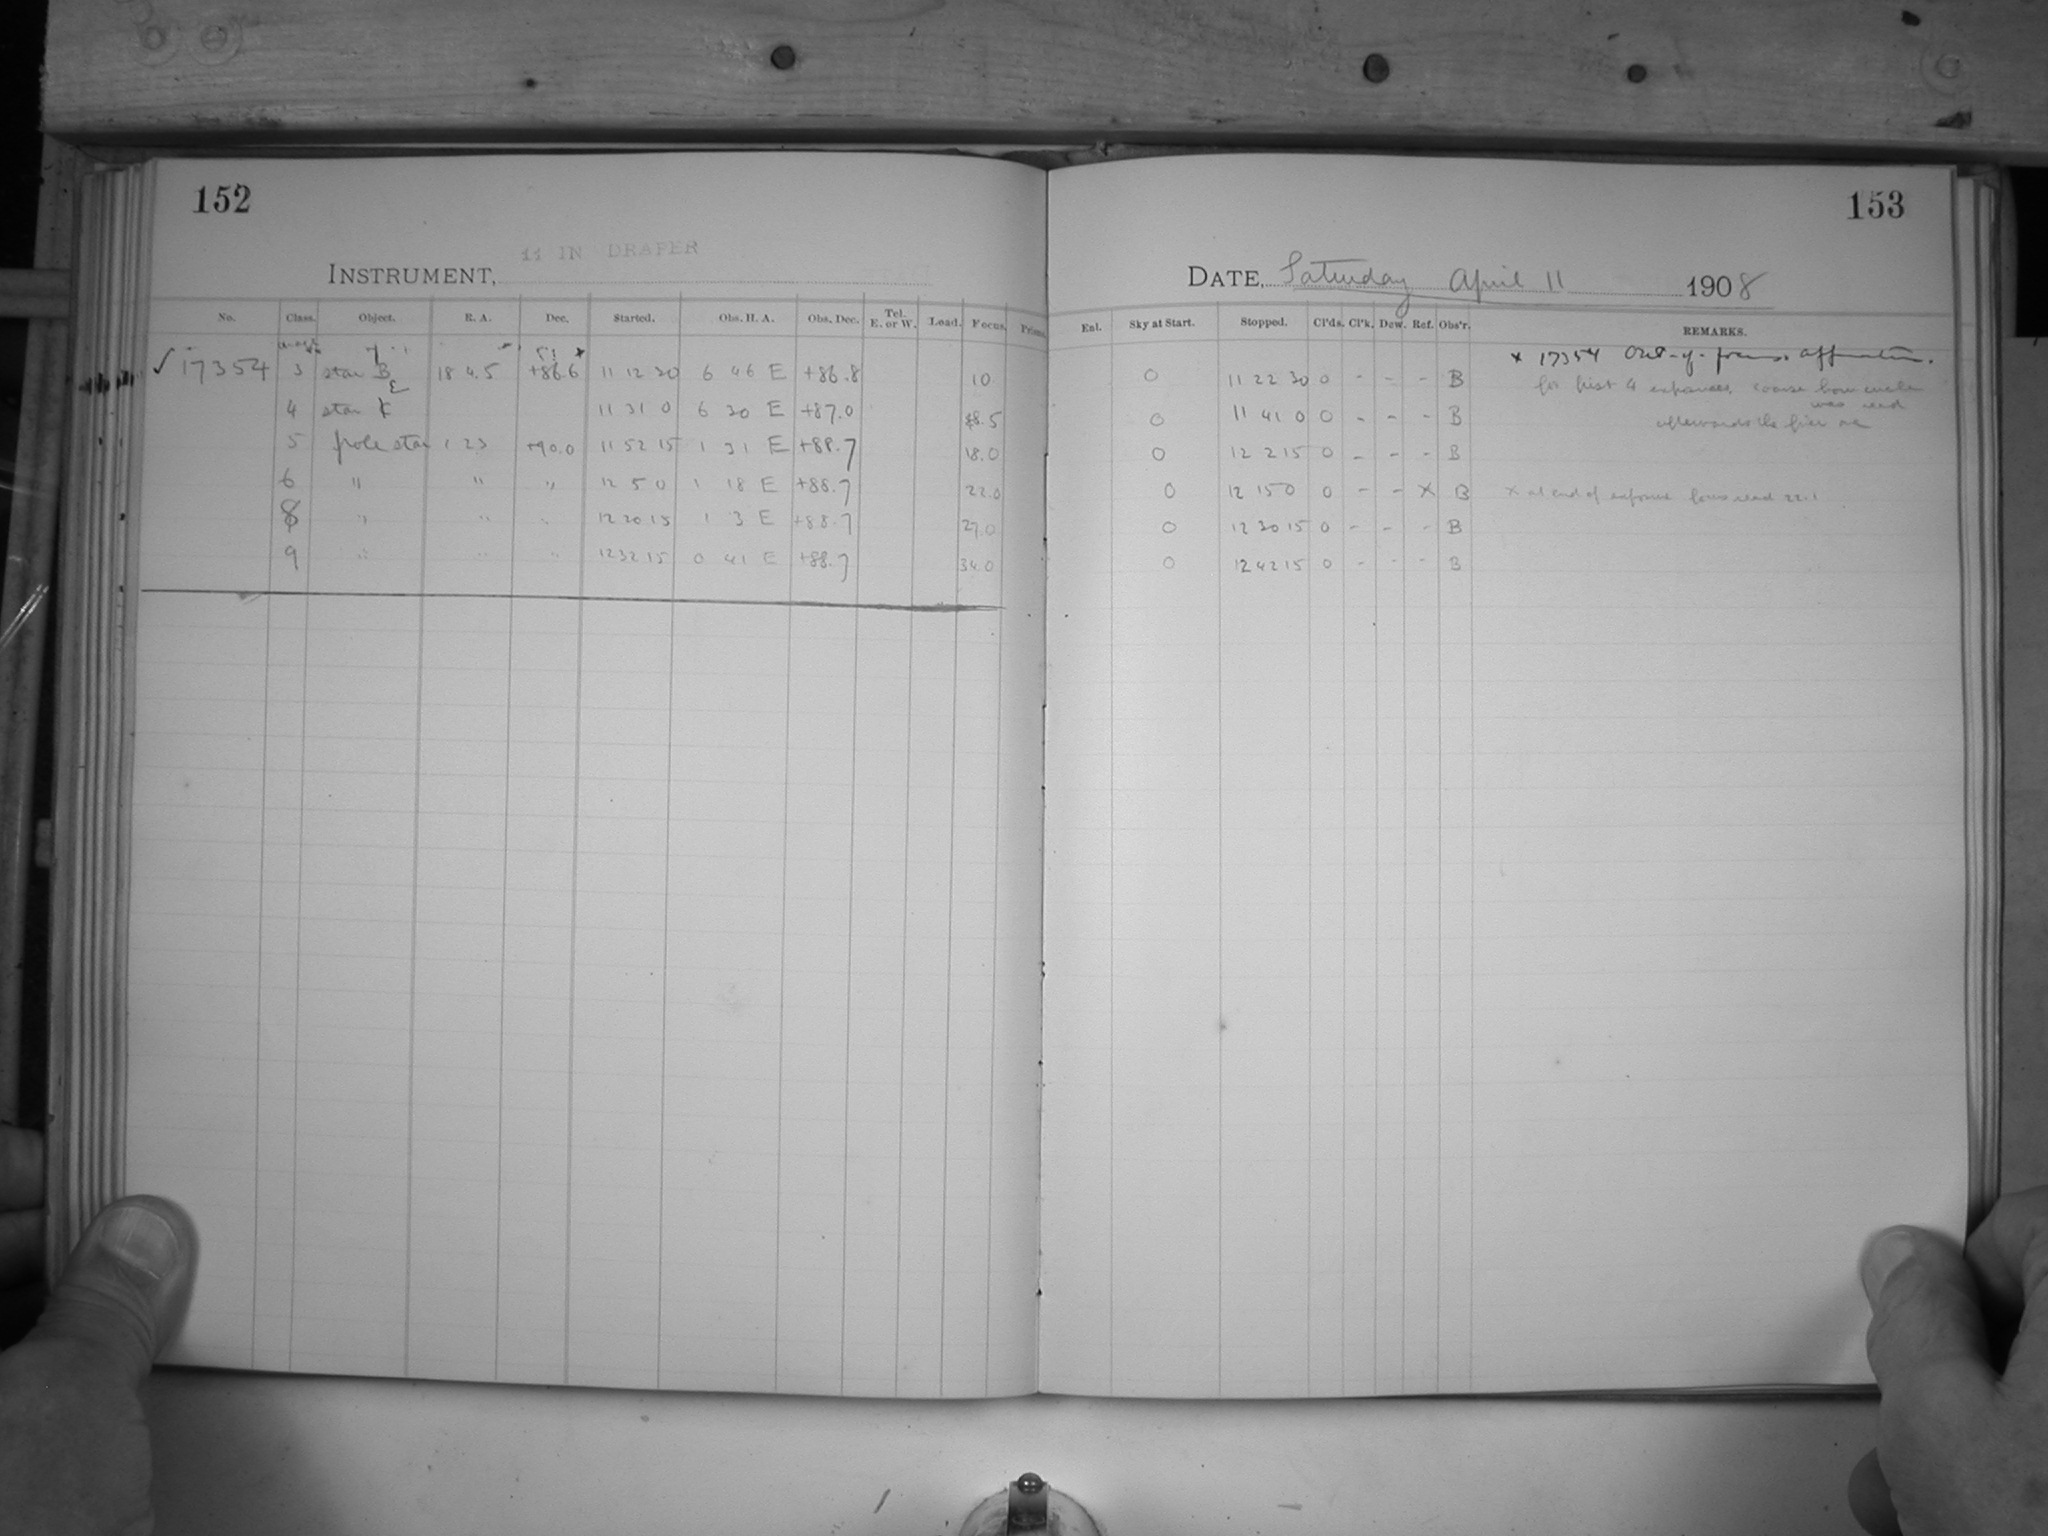 152
11 IN DRAPER
INSTRUMENT,
No. Class. Object. R. A. Dec. Started. Obs. H. A. Obs. Dec. Tel. E. or W. Load. Focus. Prisms.
✓ 17354 3 star B 18 4.5 +86.6 11 12 30 6 46 E +86.8 10
4 star 11 31 0 6 30 E +87.0 18.5
5 pole star 1 23 +90.0 11 52 15 1 31 E +88.7 18.0
6 " " " 12 5 0 1 18 E +88.7 22.0
8 " " " 12 20 15 1 3 E +88.7 27.0
9 " " " 12 32 15 0 41 E +88.7 34.0
153
DATE, Saturday April 11 1908
Enl. Sky at Start. Stopped. Cl'ds. Cl'k. Dew. Ref. Obs'r. REMARKS.
x 17354 Out-of-focus
0 11 22 30 0 - - - B for first 4 exposures, coarse hour circle
was read
0 11 41 0 0 - - - B afterwards the finer one
0 12 2 15 0 - - - B
0 12 15 0 0 - - x B x at end of exposure focus read 22.1
0 12 30 15 0 - - - B
0 12 42 15 0 - - - B